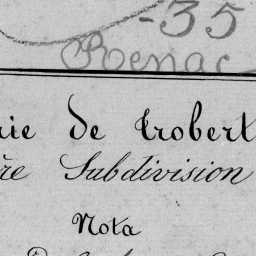 -35
Renac
rie de Trobert
re Subdivision
Nota